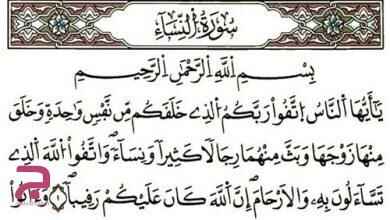 سُورَةُ النِّسَاءِ
بِسْمِ اللَّهِ الرَّحْمَٰنِ الرَّحِيمِ
يَٰٓأَيُّهَا اَلنَّاسُ اُتَّقُواْ رَبَّكُمُ اُلذِے خَلَقَكُم مِّن نَّفْسٖ وَٰحِدَةٖ وَخَلَقَ
مِنْهَا زَوْجَهَا وَبَثَّ مِنْهُمَا رِجَالاٗ كَثِيراٗ وَنِسَآءٗۖ وَاتَّقُواْ اُللَّهَ اَلذِے
تَسَّآءَلُونَ بِهِۦ وَالَارْحَامَۖ إِنَّ اَللَّهَ كَانَ عَلَيْكُمْ رَقِيباٗۖ ١ وَءَاتُواْ